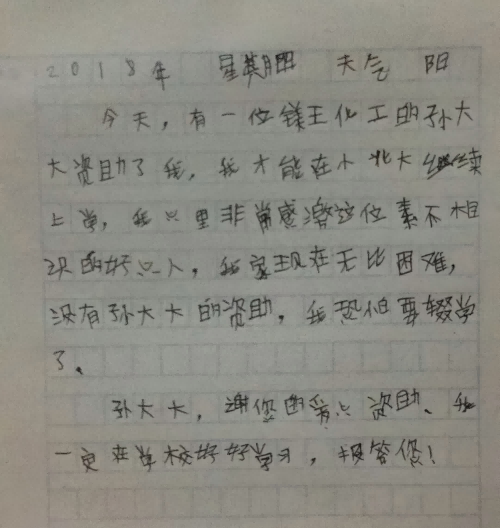 2018年 星期四 天气 阳
今天,有一位镁王化工的孙大
大资助了我,我才能在小北大继续
上学,我心里非常感激这位素不相
识的好心人,我家现在无比困难,
没有孙大大的资助,我恐怕要辍学
了。
孙大大,谢您的爱心资助、我
一定在学校好好学习,报答您!